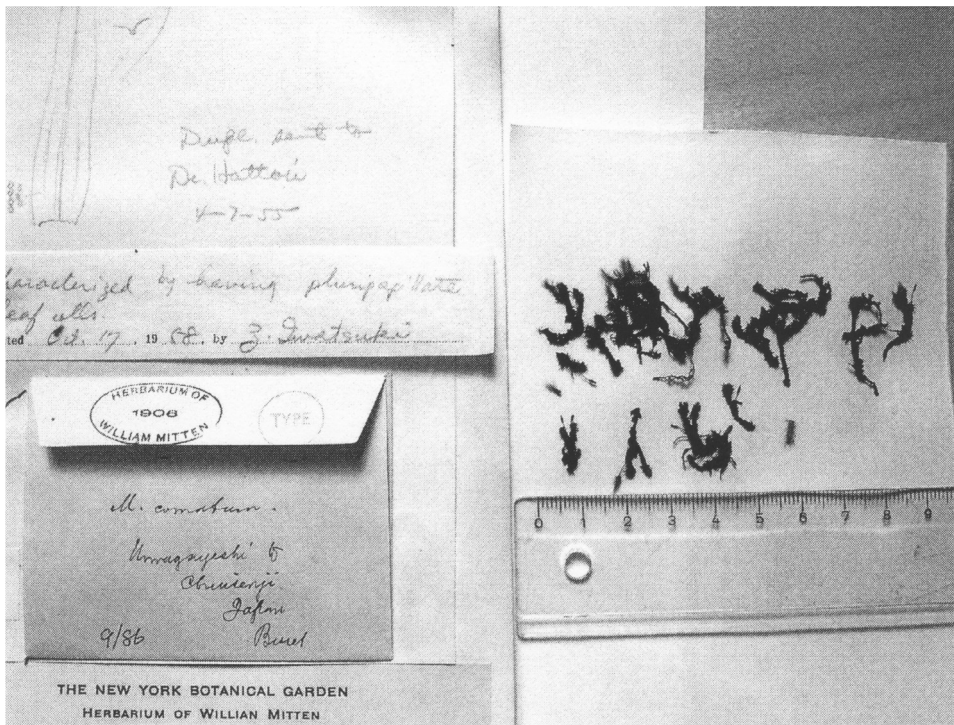 Dupl. sent to
Dr. Hattori
4-7-55
haracterized by having pluripapillate
leaf cells.
ted Oct. 17, 1958. by Z. Iwatsuki
HERBARIUM OF
1906
WILLIAM MITTEN
TYPE
M. comatum.
to
Chiusenji
Japan
9/86 Bisset
THE NEW YORK BOTANICAL GARDEN
HERBARIUM OF WILLIAN MITTEN
0 1 2 3 4 5 6 7 8 9